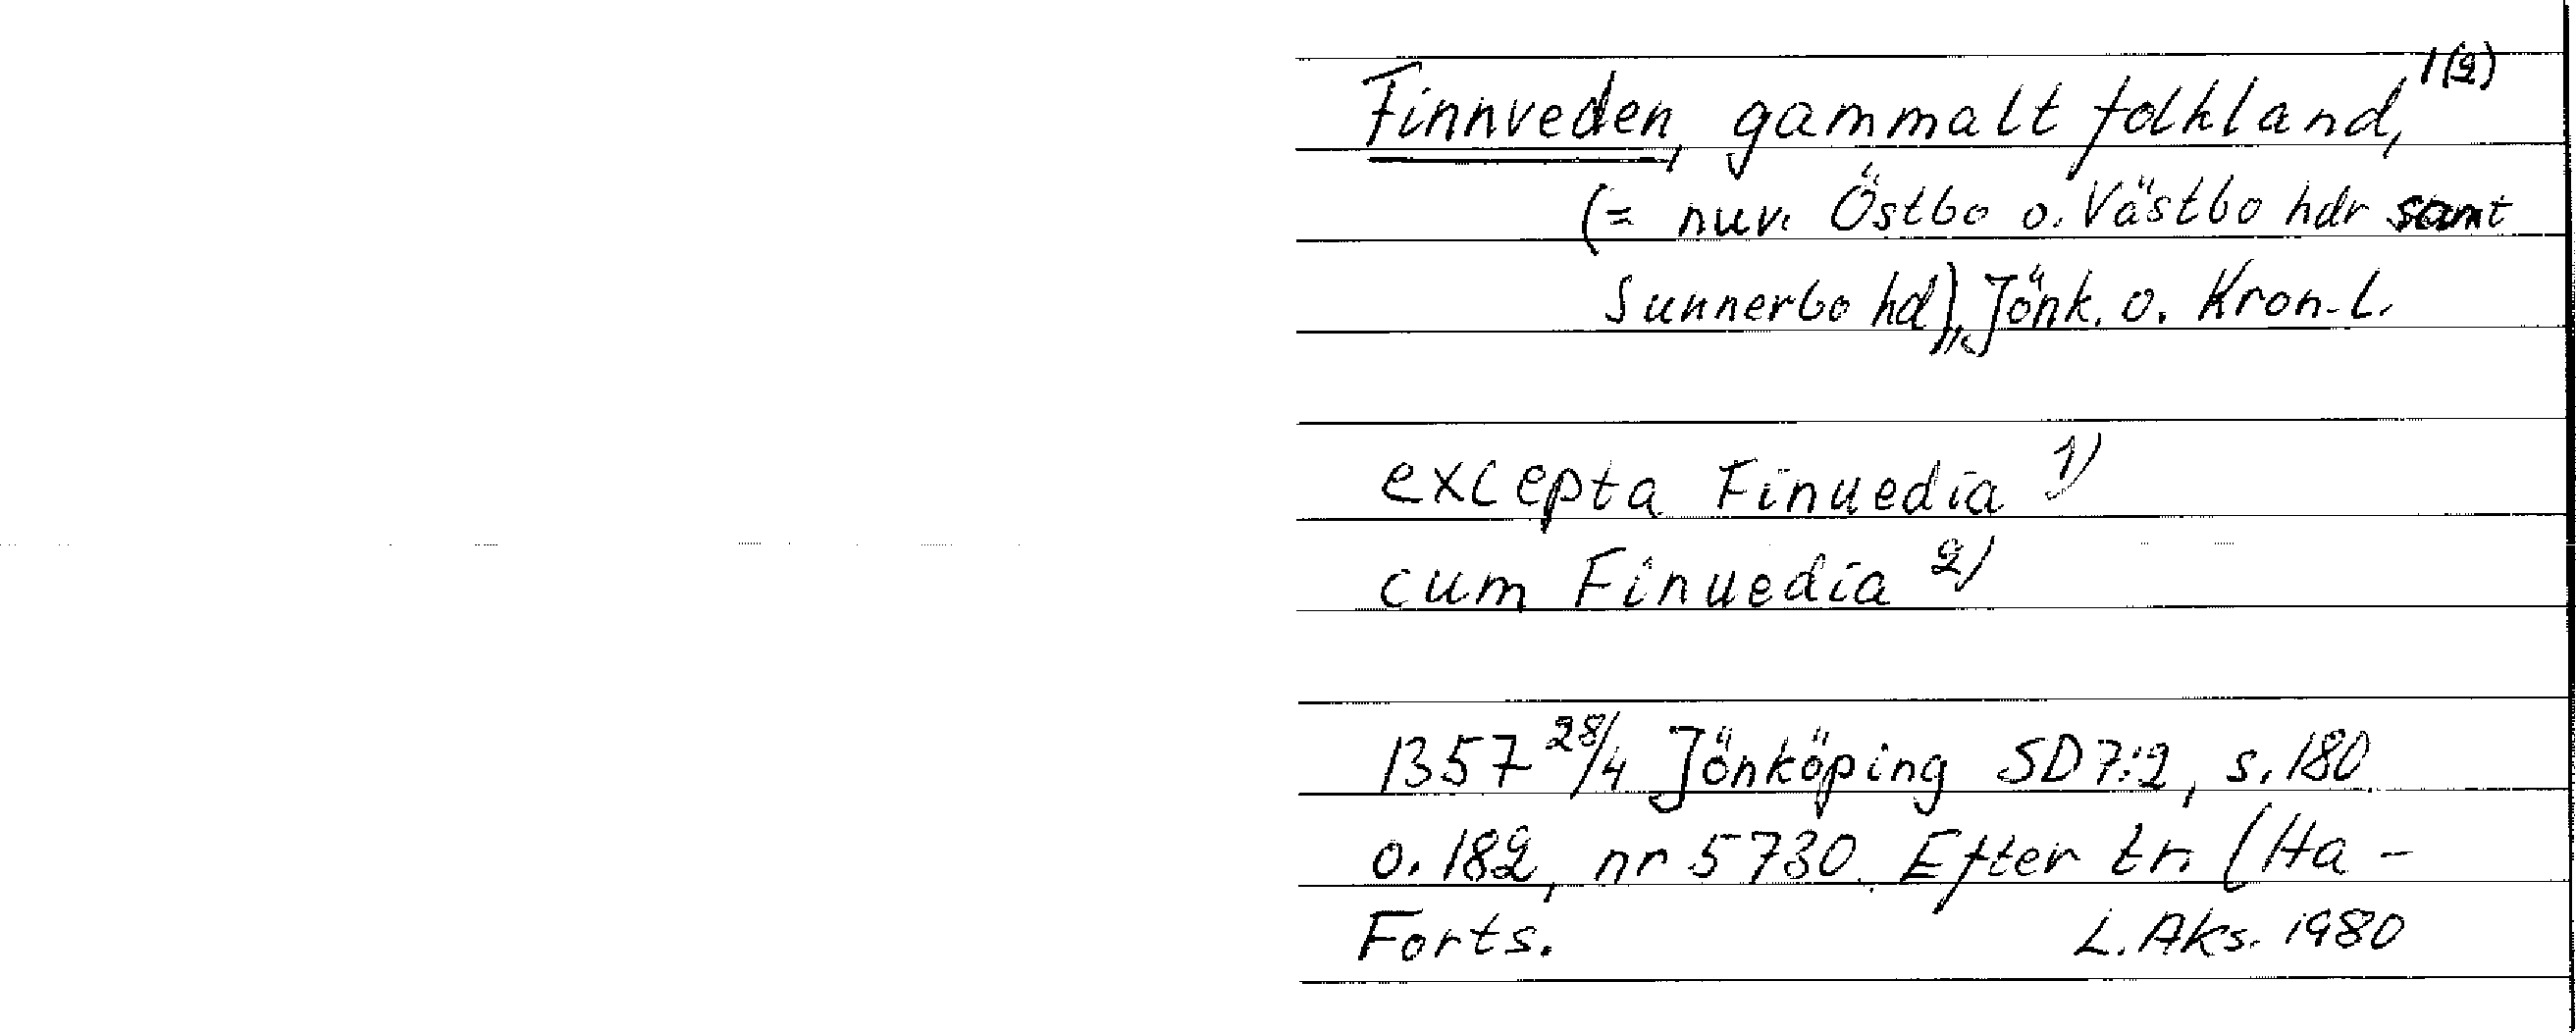 1(2)
Finnveden, gammalt folkland,
(= nuv. Östbo o. Västbo hdr samt
Sunnerbo hd), Jönk. o. Kron. L.
excepta Finuedia 1)
cum Finuedia 2)
1357 28/4 Jönköping SD 7:2, s. 180
o. 182, nr 5730. Efter tr. (Ha -
Forts. L. Aks. 1980